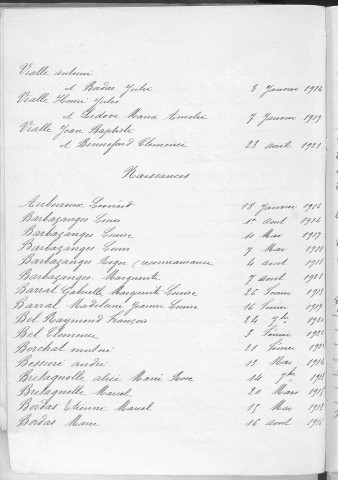 Vialle antoine
et Badas Julie 8 Janvier 1914
Vialle Henri Jules
et Ledoux Maria Amélie 7 Janvier 1919
Vialle Jean Baptiste
et Bonnefond Clemence 23 aout 1921
Naissances
Léonard 18 Janvier
Barbazanges Louis 1er aout 1914
Barbazanges Louise 10 Mai 1917
Barbazanges Louis 7 Mai 1918
Barbazanges Roger (reconnaissance 4 aout 1918
Barbazanges Marguerite 7 aout 1921
Barral Gabrielle Marguerite Louise 26 Février 1913
Barral Madeleine Jeanne Louise 16 Février 1919
Bel Raymond François 24 7bre 1921
Bel Clemence 8 Février 1922
Berchat 21 Février
Besseri andré 13 Mai 1914
Bretagnolle alice Marie Rose 14 7bre 1915
Bretagnolle Marcel 20 Mars 1918
Bordas Etienne Marcel 15 Mai 1915
Bordas Marie 16 aout 1916